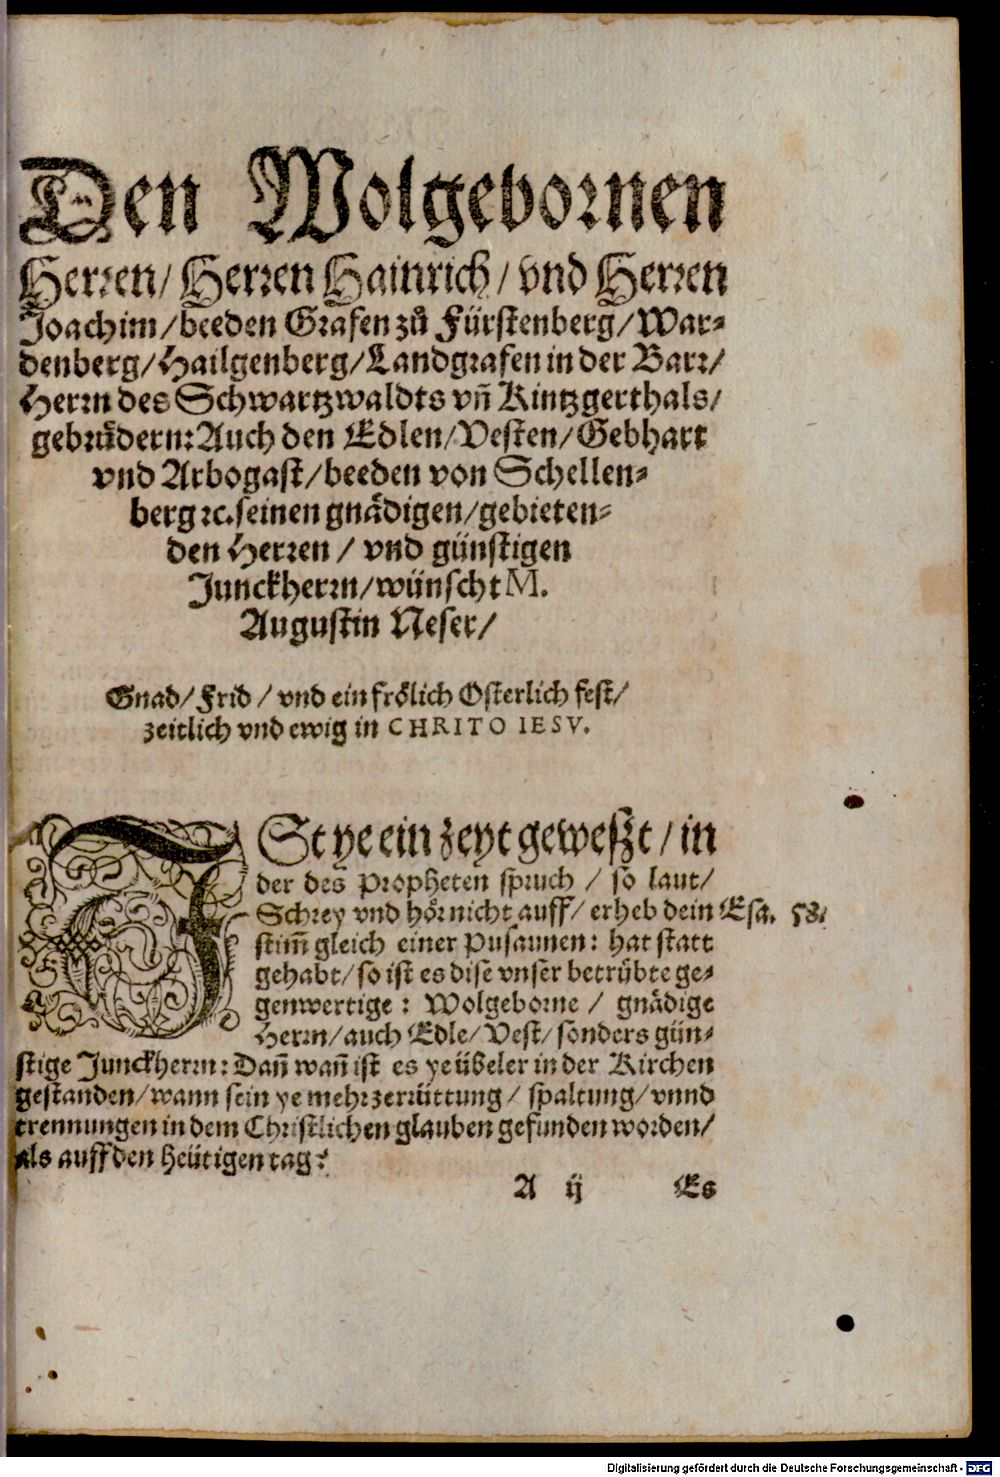 Den Wolgebornen
Herren/ Herren Hainrich/ vnd Herren
Joachim/ beeden Grafen zů Fürstenberg/ War⸗
denberg/ Hailgenberg/ Landgrafen in der Barr/
Herrn des Schwartzwaldts vn̄ Kintzgerthals/
gebrüdern: Auch den Edlen/ Vesten/ Gebhart
vnd Arbogast/ beeden von Schellen⸗
berg ꝛc. seinen gnädigen/ gebieten⸗
den Herren / vnd günstigen
Junckherrn/ wünscht M.
Augustin Neser/
Gnad/ Frid / vnd ein frölich Osterlich fest/
zeitlich vnd ewig in CHRITO IESV.
ISt ye ein zeyt geweßt / in
der des Propheten spruch / so laut/
Schrey vnd hör nicht auff/ erheb dein Esa. 58.
stim̄ gleich einer Pusaunen: hat statt
gehabt/ so ist es dise vnser betrübte ge⸗
genwertige: Wolgeborne / gnädige
Herrn/ auch Edle/ Vest/ sonders gün⸗
stige Junckherrn: Dan̄ wan̄ ist es ye übeler in der Kirchen
gestanden/ wann sein ye mehr zerrüttung / spaltung/ vnnd
trennungen in dem Christlichen glauben gefunden worden/
als auff den heütigen tag?
A ij Es
Digitalisierung gefördert durch die Deutsche Forschungsgemeinschaft - DFG